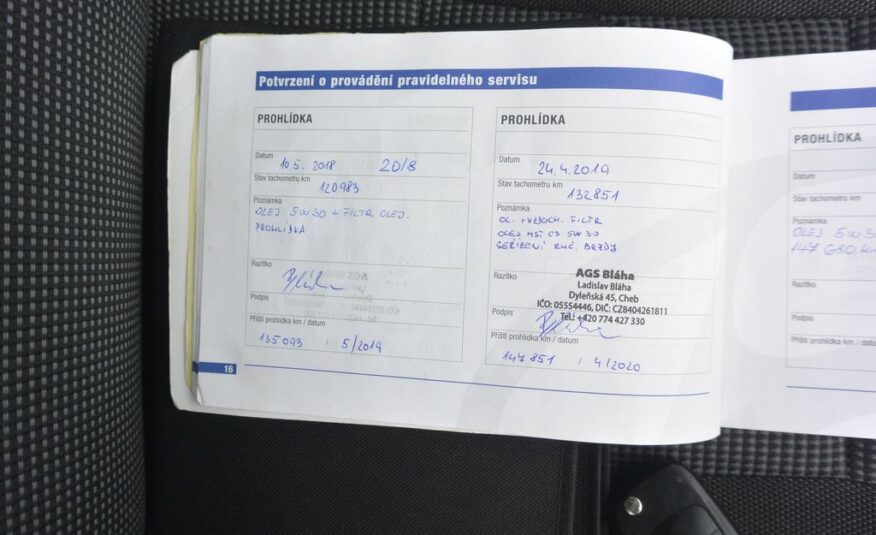 Potvrzení o provádění pravidelného servisu
PROHLÍDKA
Datum 10.5. 2018 2018
Stav tachometru km 120983
Poznámka
OLEJ 5W30 + FILTR OLEJ.
PROHLÍDKA
Razítko
Podpis
Příští prohlídka km / datum
135 093 / 5/2019
16
PROHLÍDKA
Datum 24.4.2019
Stav tachometru km 132851
Poznámka
OL. + VZDUCH. FILTR
OLEJ MST C3 5W30
SEŘÍZENÍ RUČ. BRZDY
Razítko
AGS Bláha
Ladislav Bláha
Dyleňská 45, Cheb
IČO: 05554446, DIČ: CZ8404261811
Tel.: +420 774 427 330
Podpis
Příští prohlídka km / datum
147 851 / 4/2020
PROHLÍDKA
Datum
Stav tachometru km
Poznámka
OLEJ 5W30
147 680
Razítko
Podpis
Příští prohlídka km / datum